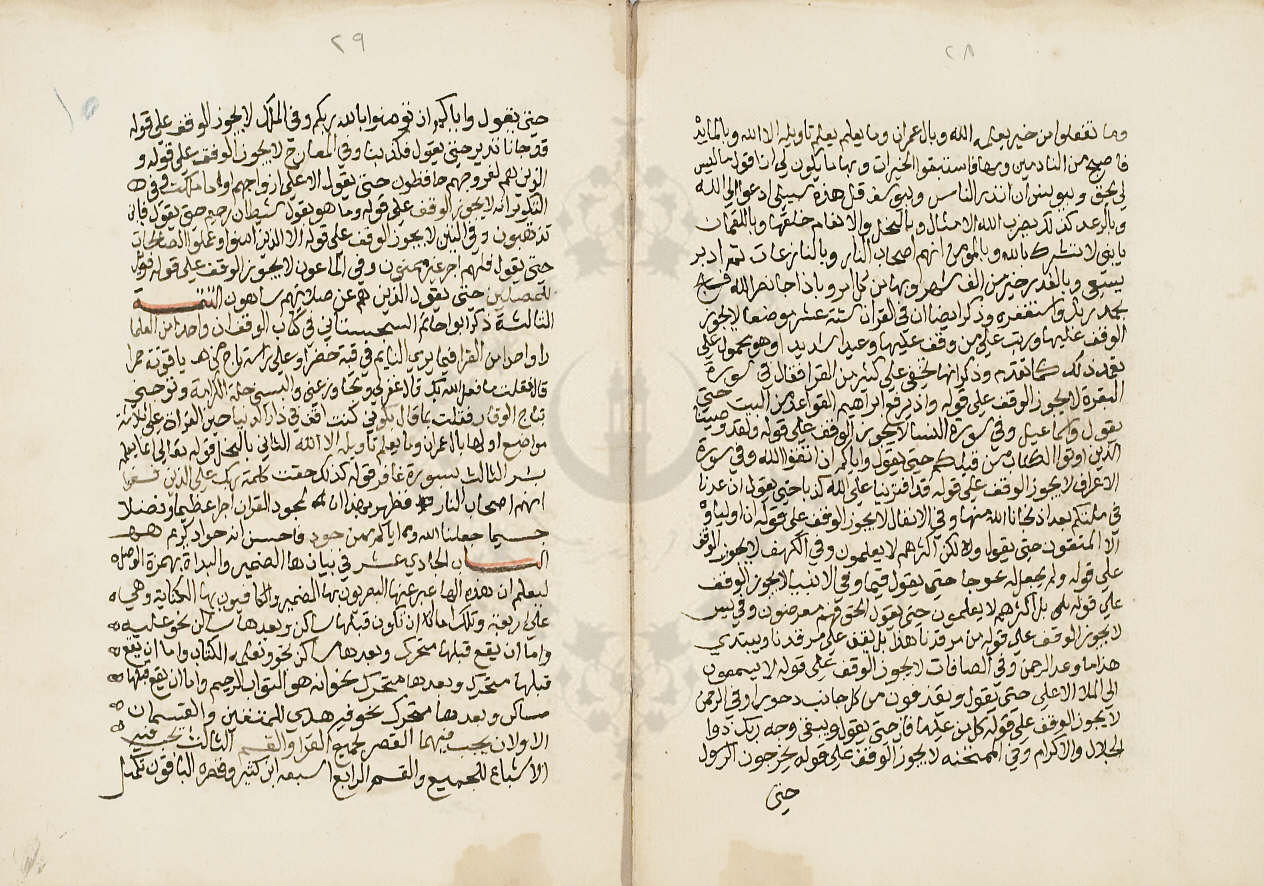 ٢٨
وما تفعلوا من خير يعلمه الله وبال عمران وما يعلم تاويله الا الله وبالمايدة
فاصبح من النادمين وبها فاستبقوا الخيرات وبها ما يكون لي ان اقول ما ليس
لي بحق وبيونس أن انذر الناس وبيوسف قل هذه سبيلي ادعو الى الله
وبالرعد كذلك يضرب الله الامثال وبالنحل والانعام خلقها وبلقمان
يابني لا تشرك بالله وبالمومن انهم اصحاب النار وبالنازعات ثم ادبر
يسعى وبالقدر خير من الف شهر وبها من كل امر وباذا جا نصر الله فسبح
بحمد ربك واستغفره وذكر ايضا ان في القران ستة عشر موضعا لا يجوز
الوقف عليها ورتب على من وقف عليها وعيدا شديدا وهو محمول على
تعمد ذلك كما تقدم وذكر انها تخفى على كثير من القرا فقال في سورة
البقرة لا يجوز الوقف على قوله واذ يرفع ابراهيم القواعد من البيت حتى
يقول واسماعيل وفي سورة النسا لا يجوز الوقف على قوله ولقد وصينا
الذين اوتوا الكتاب من قبلكم حتى يقول واياكم ان اتقوا الله وفي سورة
الاعراف لا يجوز الوقف على قوله قد افترينا على الله كذبا حتى يقول ان عدنا
في ملتكم بعد اذ نجانا الله منها وفي الانفال لا يجوز الوقف على قوله ان اولياوه
الا المتقون حتى يقول ولكن اكثرهم لا يعلمون وفي الكهف لا يجوز الوقف
على قوله ولم يجعل له عوجا حتى يقول قيما وفي الانبيا لا يجوز الوقف
على قوله بل اكثرهم لا يعلمون حتى يقول الحق فهم معرضون وفي يس
لا يجوز الوقف على قوله من مرقدنا هذا بل يقف على مرقدنا ويبتدي
هذا ما وعد الرحمن وفي الصافات لا يجوز الوقف على قوله لا يسمعون
الى الملا الاعلى حتى يقول ويقذفون من كل جانب دحورا وفي الرحمن
لا يجوز الوقف على قوله كل من عليها فان حتى يقول ويبقى وجه ربك ذوا
الجلال والاكرام وفي الممتحنه لا يجوز الوقف على قوله يخرجون الرسول
حتى
٢٩
حتى يقول واياكم ان تومنوا بالله ربكم وفي الملك لا يجوز الوقف على قوله
قد جانا نذير حتى يقول فكذبنا وفي المعارج لا يجوز الوقف على قوله و
الذين هم لفروجهم حافظون حتى يقول الا على ازواجهم او ما ملكت وفي
التكوير انه لا يجوز الوقف على قوله وما هو بقول شيطان رجيم حتى يقول فاين
تذهبون وفي التين لا يجوز الوقف على قوله الا الذين امنوا وعملوا الصالحات
حتى يقول فلهم اجر غير ممنون وفي الماعون لا يجوز الوقف على قوله فويل
للمصلين حتى يقول الذين هم عن صلاتهم ساهون التتمة
الثالثة ذكر ابو حاتم السجستاني في كتاب الوقف ان واحدا من العلما
را واحدا من القرا فيما يرى النايم في قبة خضرا وعلى راسه تاج من ياقوتة حمرا
قال فقلت ما فعل الله بك قال غفر لي وتجاوز عني والبسني حلة الكرامة وتوجني
بتاج الوقار فقلت بما قال بكوني كنت اقف في دار الدنيا حين القراة على ثلاثة
مواضع اولها بال عمران وما يعلم تاويله الا الله الثاني بالنحل قوله تعالى انما يعلمه
بشر الثالث بسورة غافر قوله كذلك حقت كلمة ربك على الذين كفروا
انهم اصحاب النار فظهر بهذا ان لمجود القران اجر عظيما وفضلا
جسيما جعلنا الله واياكم ممن جود فاحسن انه جواد كريم
الباب الحادي عشر في بيان ها الضمير والبداة بهمزة الوصل
ليعلم ان هذه الها عبر عنها البصريون بها الضمير والكوفيون بها الكناية وهي
على اربعة وتلك اما ان تكون قبلها ساكن وبعدها ساكن نحو عليه
واما ان يقع قبلها متحرك وبعدها ساكن نحو ونعلمه الكتاب واما ان يقع
قبلها متحرك وبعدها متحرك نحو انه هو التواب الرحيم واما ان يقع قبلها
ساكن وبعدها متحرك نحو فيه هدى للمتقين والقسمان
الاولان يجب فيهما القصر لجميع القرا والقسم الثالث يجب فيه
الاشباع للجميع والقسم الرابع اشبعه ابن كثير وقصره الباقون